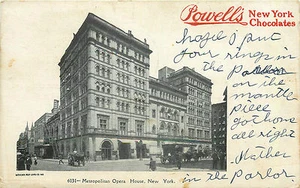 Powell's New York
Chocolates
hope I put
your rings in
the parlor
on the
mantle
piece
got home
all right
Mother
in
the parlor
6131—Metropolitan Opera House, New York.